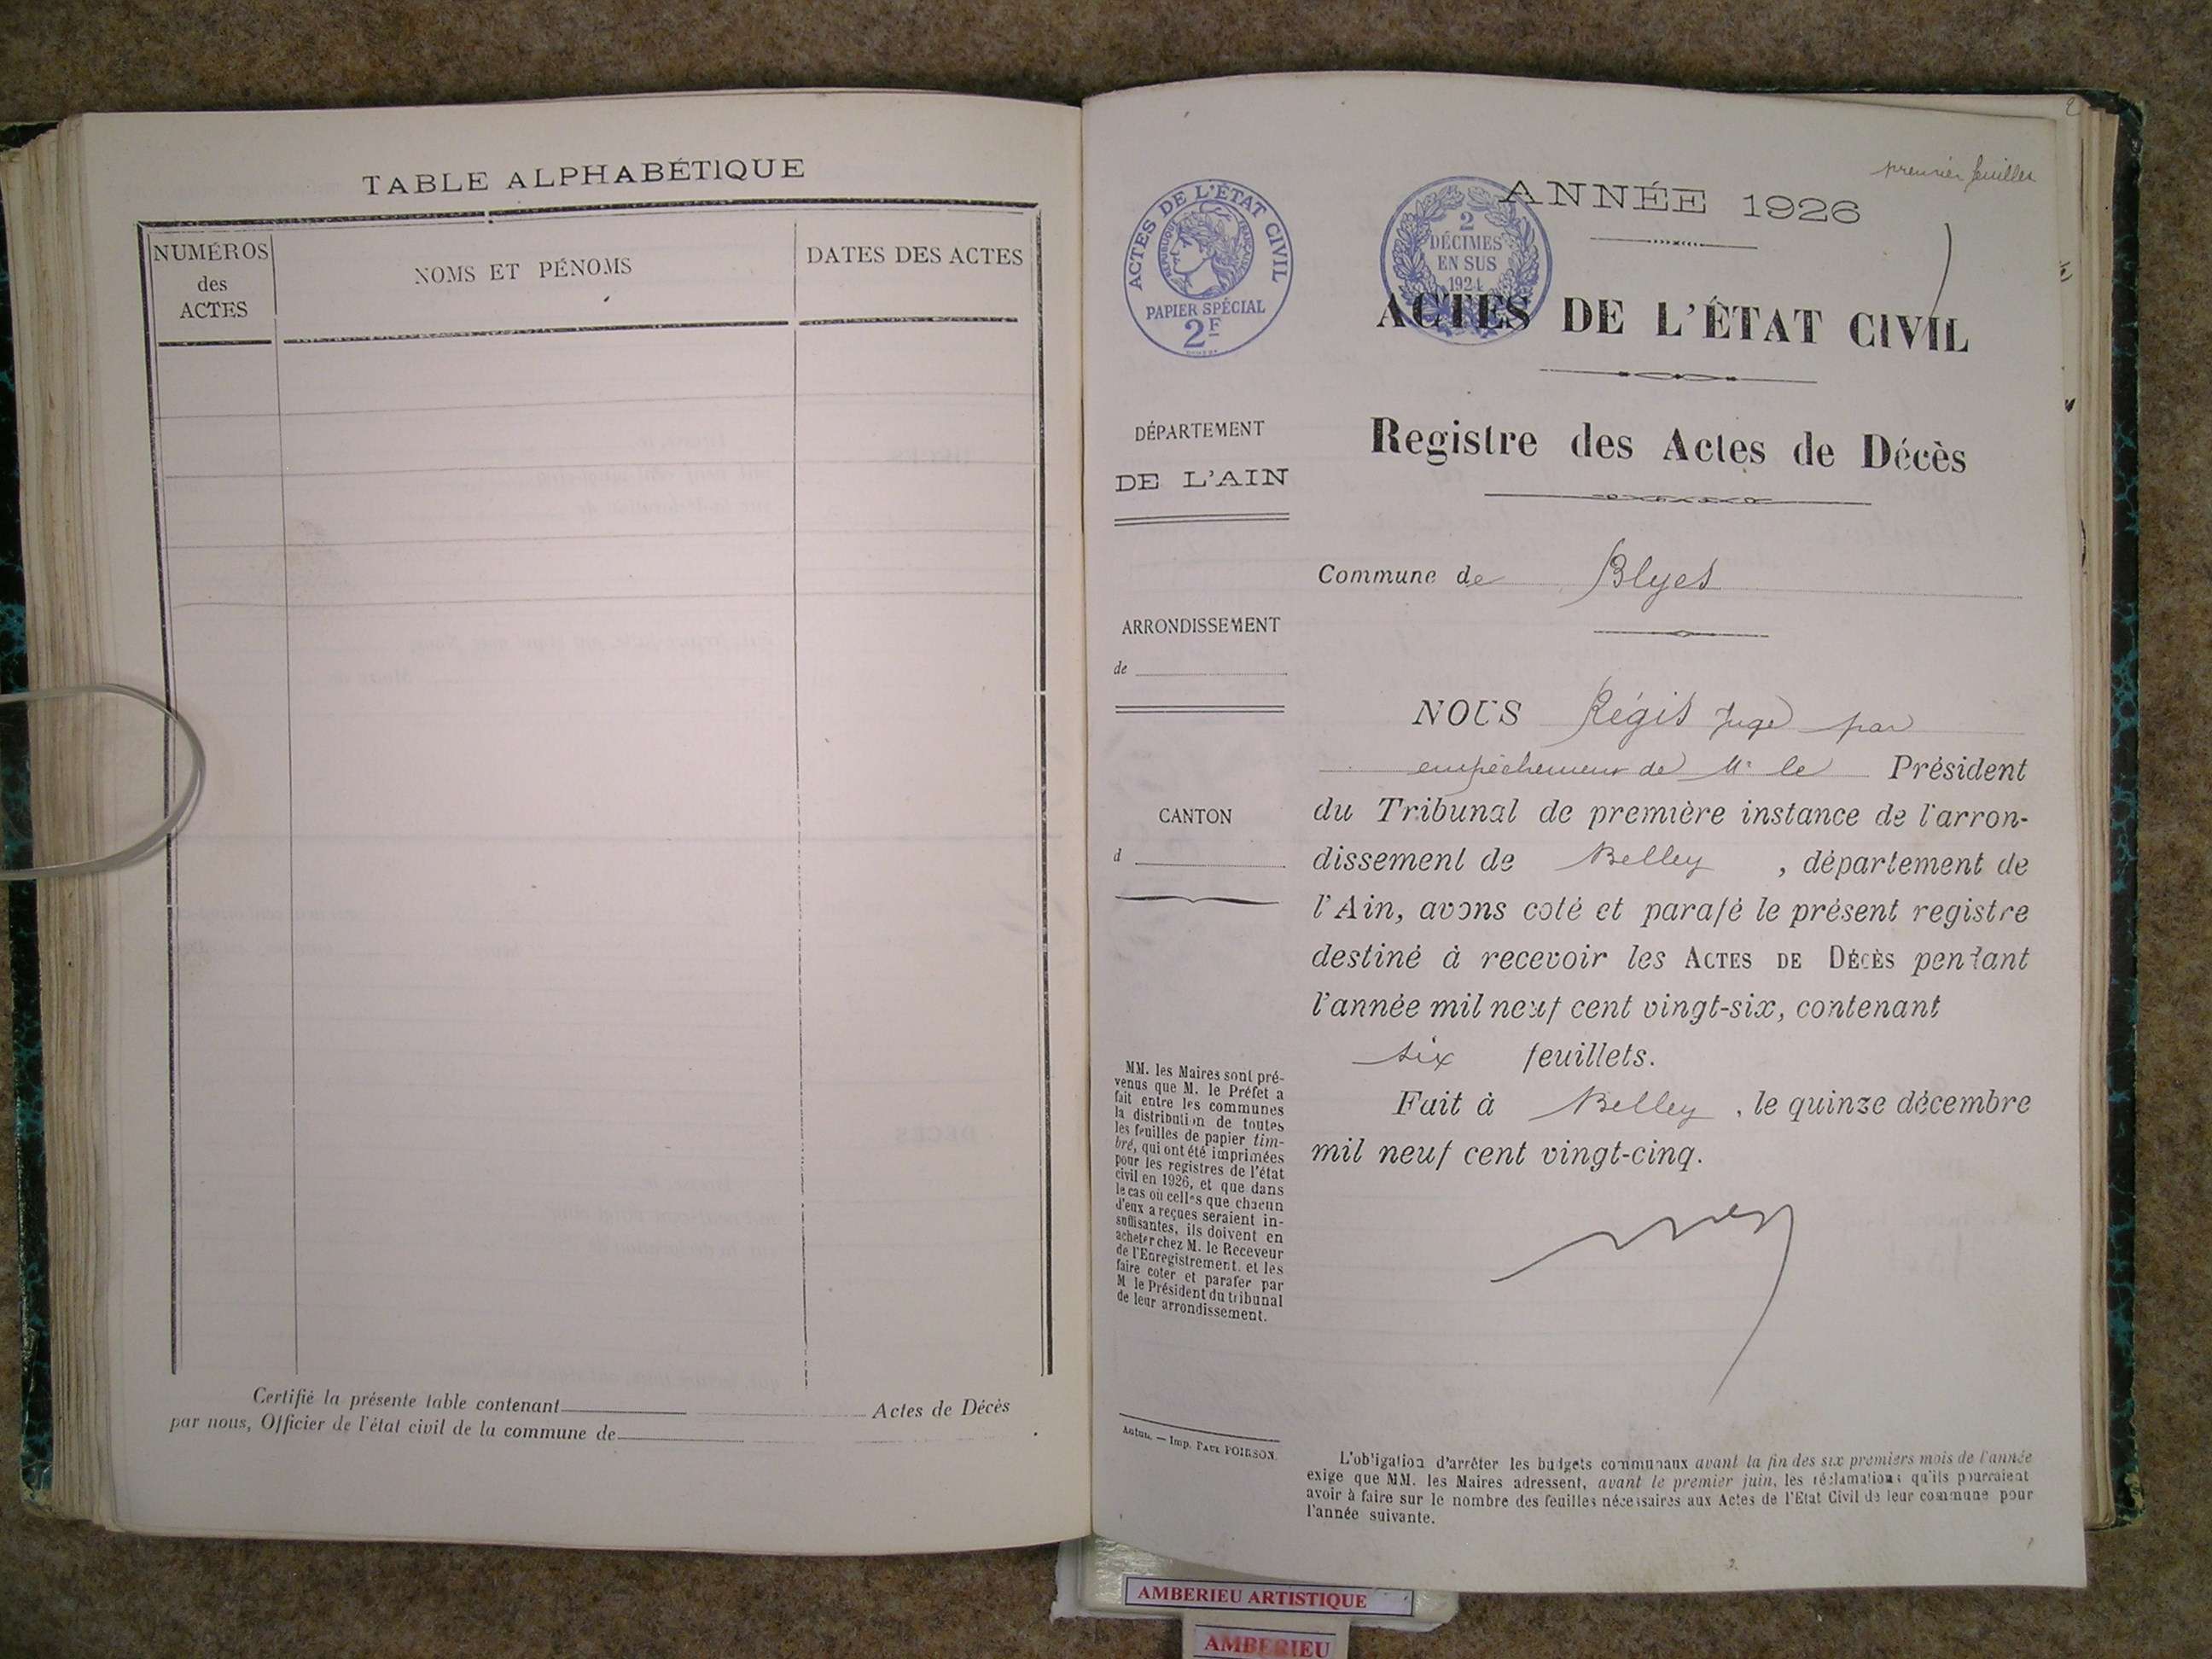 TABLE ALPHABÉTIQUE
NUMÉROS
des
ACTES
NOMS ET PÉNOMS
DATES DES ACTES
Certifié la présente table contenant Actes de Décès
par nous, Officier de l'état civil de la commune de
2
premier feuillet
ANNÉE 1926
ACTES DE L'ÉTAT CIVIL
RÉPUBLIQUE FRANÇAISE
PAPIER SPÉCIAL
2F
2
DÉCIMES
EN SUS
1924
ACTES DE L'ÉTAT CIVIL
Registre des Actes de Décès
DÉPARTEMENT
DE L'AIN
ARRONDISSEMENT
de
CANTON
d
Commune de Blyes
NOUS Régis Juge par
empêchement de Mr le Président
du Tribunal de première instance de l'arron-
dissement de Belley , département de
l'Ain, avons coté et parafé le présent registre
destiné à recevoir les ACTES DE DÉCÈS pendant
l'année mil neuf cent vingt-six, contenant
six feuillets.
Fait à Belley , le quinze décembre
mil neuf cent vingt-cinq.
MM. les Maires sont pré-
venus que M. le Préfet a
fait entre les communes
la distribution de toutes
les feuilles de papier tim-
bré, qui ont été imprimées
pour les registres de l'état
civil en 1926, et que dans
le cas où celles que chacun
d'eux a reçues seraient in-
suffisantes, ils doivent en
acheter chez M. le Receveur
de l'Enregistrement. et les
faire coter et parafer par
M le Président du tribunal
de leur arrondissement.
Autun. — Imp. PAUL POIRSON.
L'obligation d'arrêter les budgets communaux avant la fin des six premiers mois de l'année
exige que MM. les Maires adressent, avant le premier juin, les réclamations qu'ils pourraient
avoir à faire sur le nombre des feuilles nécessaires aux Actes de l'Etat Civil de leur commune pour
l'année suivante.
AMBERIEU ARTISTIQUE
AMBERIEU